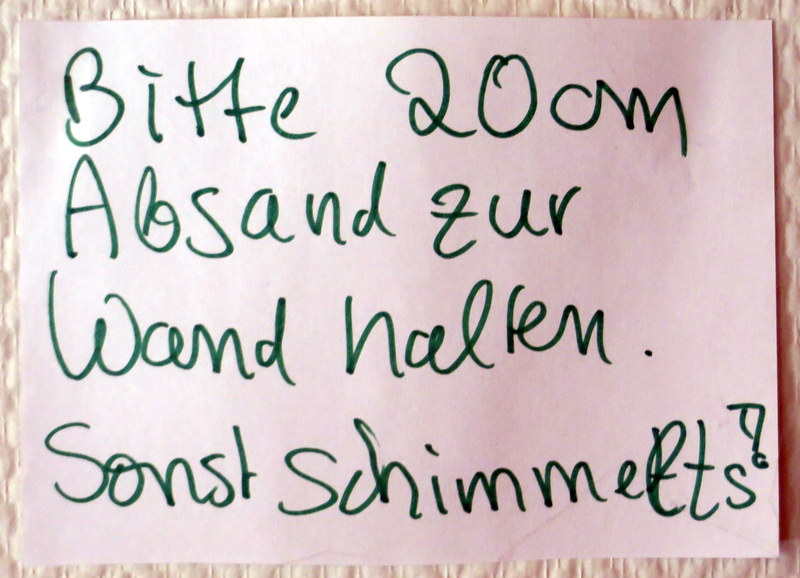 Bitte 20cm
Absand zur
Wand halten.
Sonst schimmelts?